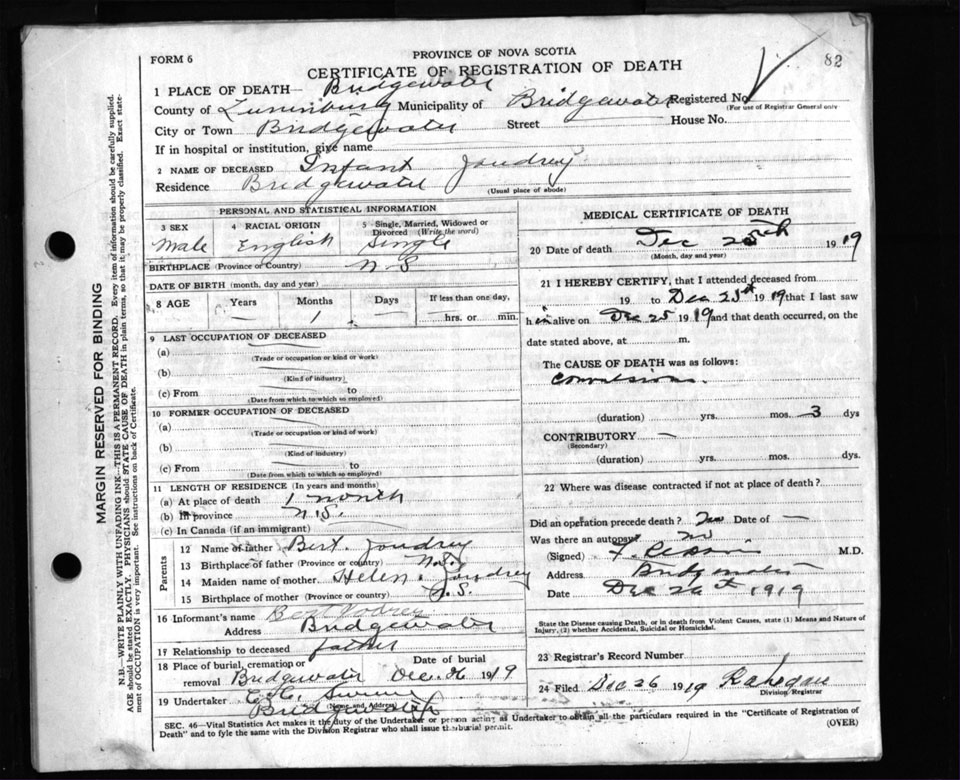 FORM 6
PROVINCE OF NOVA SCOTIA
82
CERTIFICATE OF REGISTRATION OF DEATH
1 PLACE OF DEATH— Bridgewater
County of Lunenburg Municipality of Bridgewater Registered No.
(For use of Registrar General only
City or Town Bridgewater Street House No.
If in hospital or institution, give name
2 NAME OF DECEASED Infant Joudrey
Residence Bridgewater (Usual place of abode)
PERSONAL AND STATISTICAL INFORMATION
3 SEX 4 RACIAL ORIGIN 5 Single, Married, Widowed or Divorced (Write the word)
Male English Single
BIRTHPLACE (Province or Country) N.S
DATE OF BIRTH (month, day and year)
8 AGE Years Months Days If less than one day,
— 1 — hrs. or min.
9 LAST OCCUPATION OF DECEASED
(a)
(Trade or occupation or kind or work)
(b)
(Kind of industry)
(c) From to
(Date from which to which so employed)
10 FORMER OCCUPATION OF DECEASED
(a)
(Trade or occupation or kind of work)
(b)
(Kind of industry)
(c) From to
(Date from which to which so employed)
11 LENGTH OF RESIDENCE (In years and months)
(a) At place of death 1 month
(b) In province N.S.
(c) In Canada (if an immigrant)
Parents
12 Name of father Bert. Joudrey
13 Birthplace of father (Province or country) N.S.
14 Maiden name of mother Helen. Joudrey
15 Birthplace of mother (Province or country) N.S.
16 Informant's name Bert
Address Bridgewater
17 Relationship to deceased father
18 Place of burial, cremation or Date of burial
removal Bridgewater Dec. 26 1919
19 Undertaker
Bridgewater
MEDICAL CERTIFICATE OF DEATH
20 Date of death Dec 25th 1919
(Month, day and year)
21 I HEREBY CERTIFY, that I attended deceased from
19 to Dec 25th 1919 that I last saw
h im alive on Dec 25 1919 and that death occurred, on the
date stated above, at m.
The CAUSE OF DEATH was as follows:
Convulsions.
(duration) yrs. mos. 3 dys
CONTRIBUTORY —
(Secondary)
(duration) yrs. mos. dys.
22 Where was disease contracted if not at place of death?
Did an operation precede death? no Date of —
Was there an autopsy? no
(Signed) M.D.
Address Bridgewater
Date Dec 26th 1919
State the Disease causing Death, or in death from Violent Causes, state (1) Means and Nature of
Injury, (2) whether Accidental, Suicidal or Homicidal.
23 Registrar's Record Number
24 Filed Dec 26 1919
Division Registrar
SEC. 46—Vital Statistics Act makes it the duty of the Undertaker or person acting as Undertaker to obtain all the particulars required in the "Certificate of Registration of
Death" and to fyle the same with the Division Registrar who shall issue the burial permit. (OVER)
MARGIN RESERVED FOR BINDING
N.B.—WRITE PLAINLY WITH UNFADING INK—THIS IS A PERMANENT RECORD. Every item of information should be carefully supplied.
AGE should be stated EXACTLY. PHYSICIANS should STATE CAUSE OF DEATH in plain terms, so that it may be properly classified. Exact state-
ment of OCCUPATION is very important. See instructions on back of Certificate.